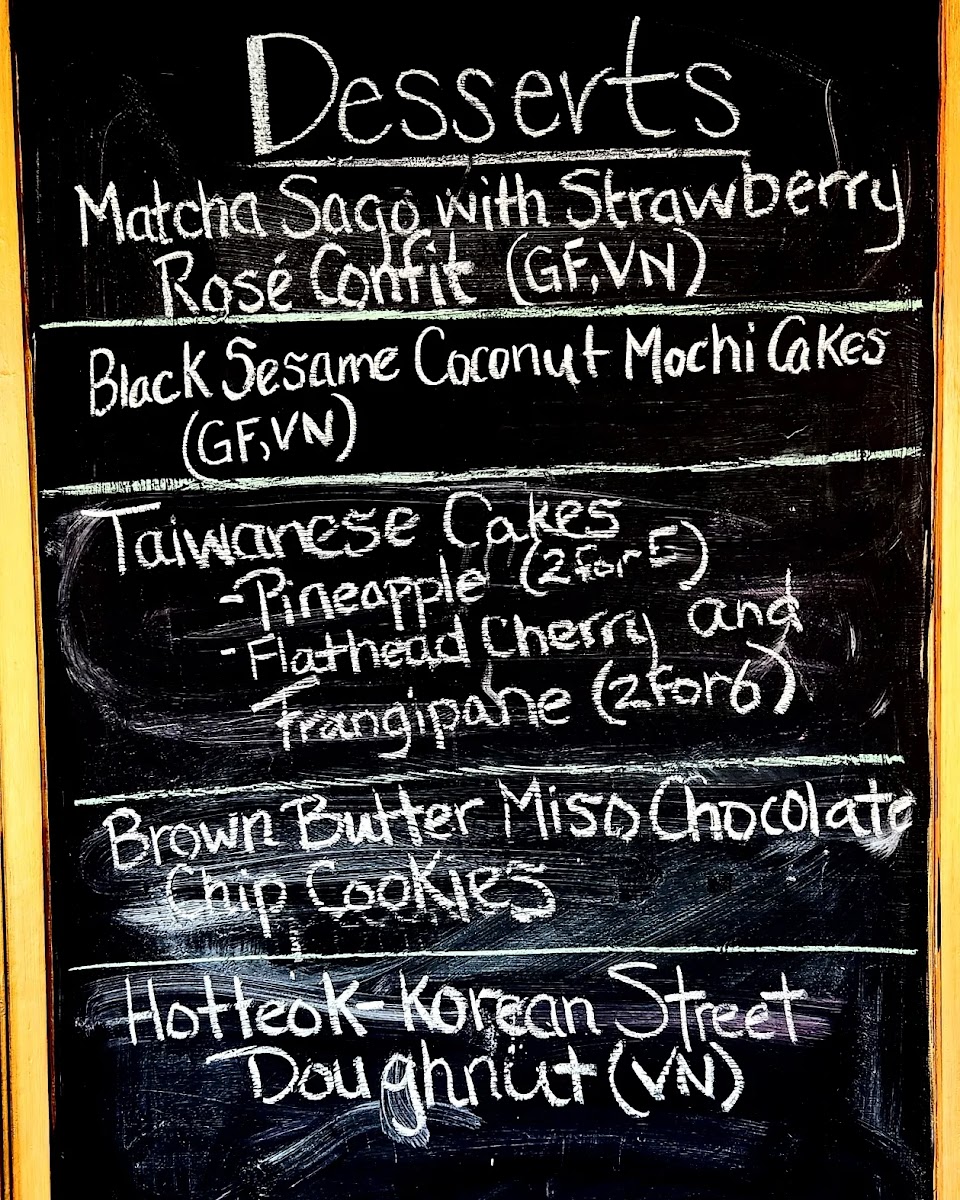 Desserts
Matcha Sago with Strawberry
Rosé Confit (GF,VN)
Black Sesame Coconut Mochi Cakes
(GF,VN)
Taiwanese Cakes
-Pineapple (2 for 5)
-Flathead Cherry and
Frangipane (2 for 6)
Brown Butter Miso Chocolate
Chip Cookies
Hotteok-Korean Street
Doughnut (VN)